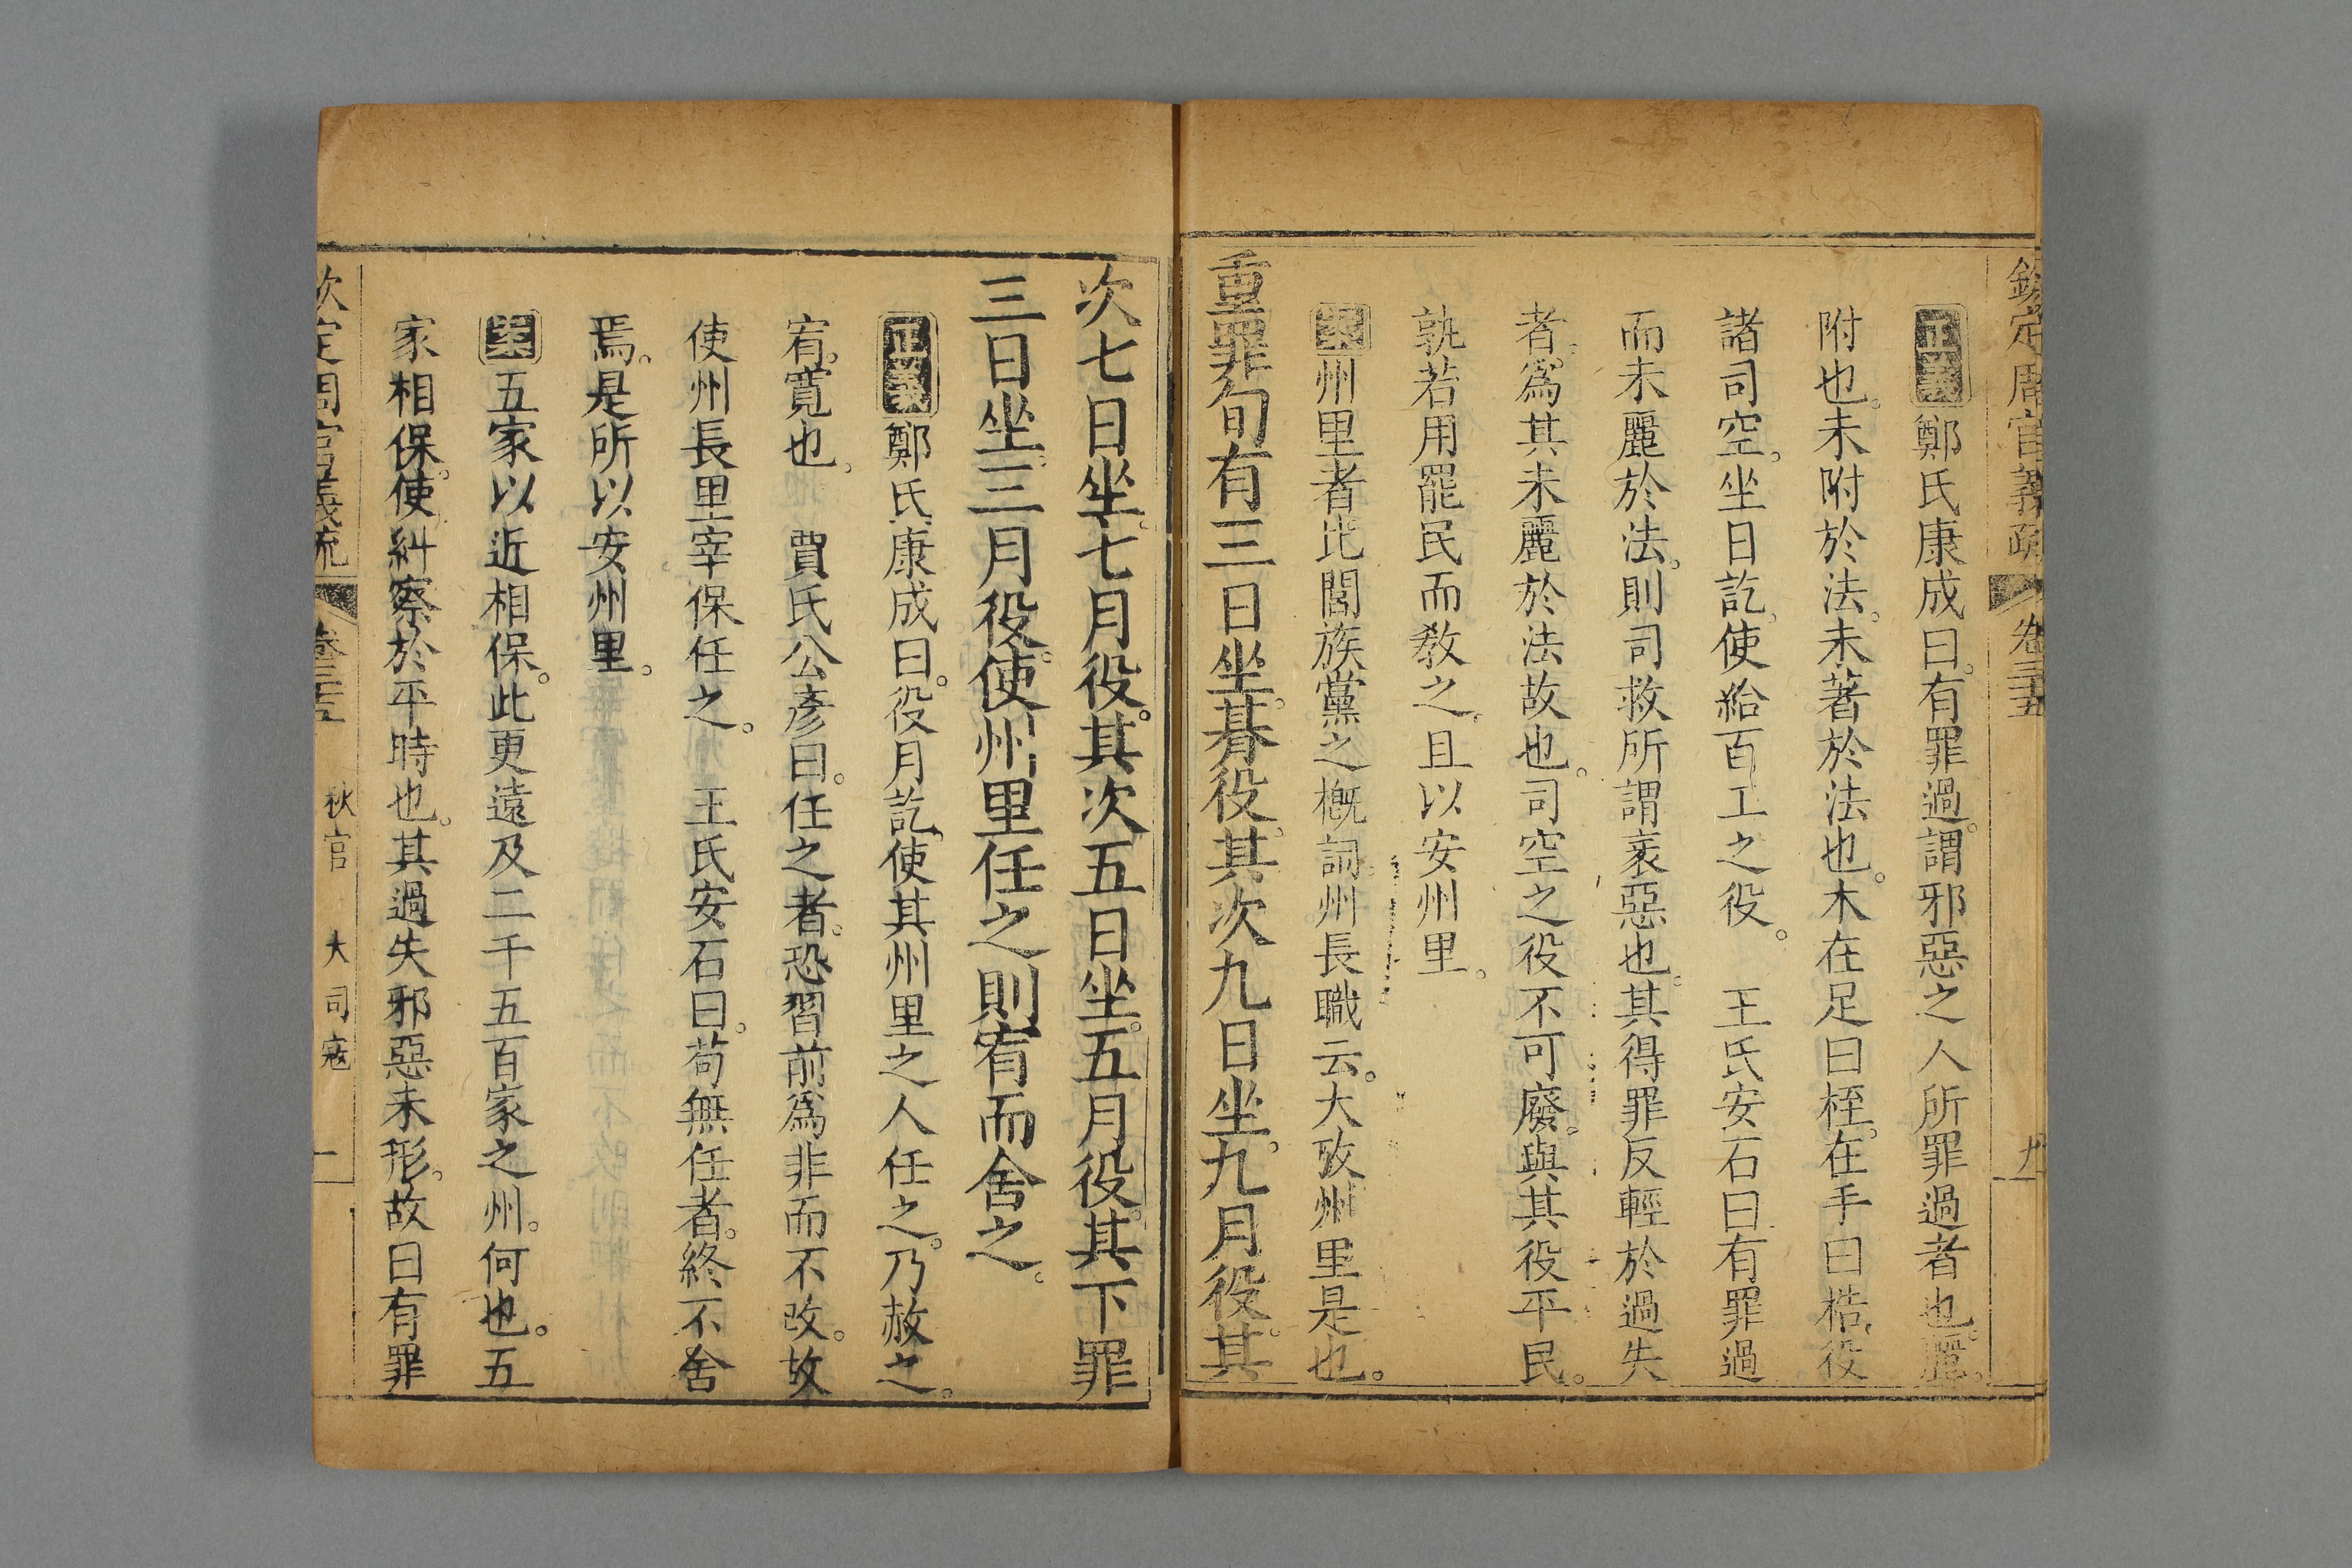 欽定周官義疏 卷三十五 九
正義鄭氏康成曰。有罪過。謂邪惡之人所罪過者也。麗。
附也。未附於法。未著於法也。木在足曰桎。在手曰梏。役
諸司空。坐日訖。使給百工之役。 王氏安石曰有罪過
而未麗於法。則司救所謂衺惡也。其得罪反輕於過失
者。爲其未麗於法故也。司空之役不可廢。與其役平民。
孰若用罷民而敎之。且以安州里。
案州里者比閭族黨之槪詞。州長職云。大攷州里是也。
重罪旬有三日坐。朞役。其次九日坐。九月役。其
次七日坐。七月役。其次五日坐。五月役。其下罪
三日坐。三月役。使州里任之則宥而舍之。
正義鄭氏康成曰。役月訖。使其州里之人任之。乃赦之。
宥。寬也。 賈氏公彥曰。任之者。恐習前爲非而不改。故
使州長里宰保任之。 王氏安石曰。苟無任者。終不舍
焉。是所以安州里。
案五家以近相保。此更遠及二千五百家之州。何也。五
家相保。使糾察於平時也。其過失邪惡未形。故曰有罪
欽定周官義疏 卷三十五 秋官 大司寇